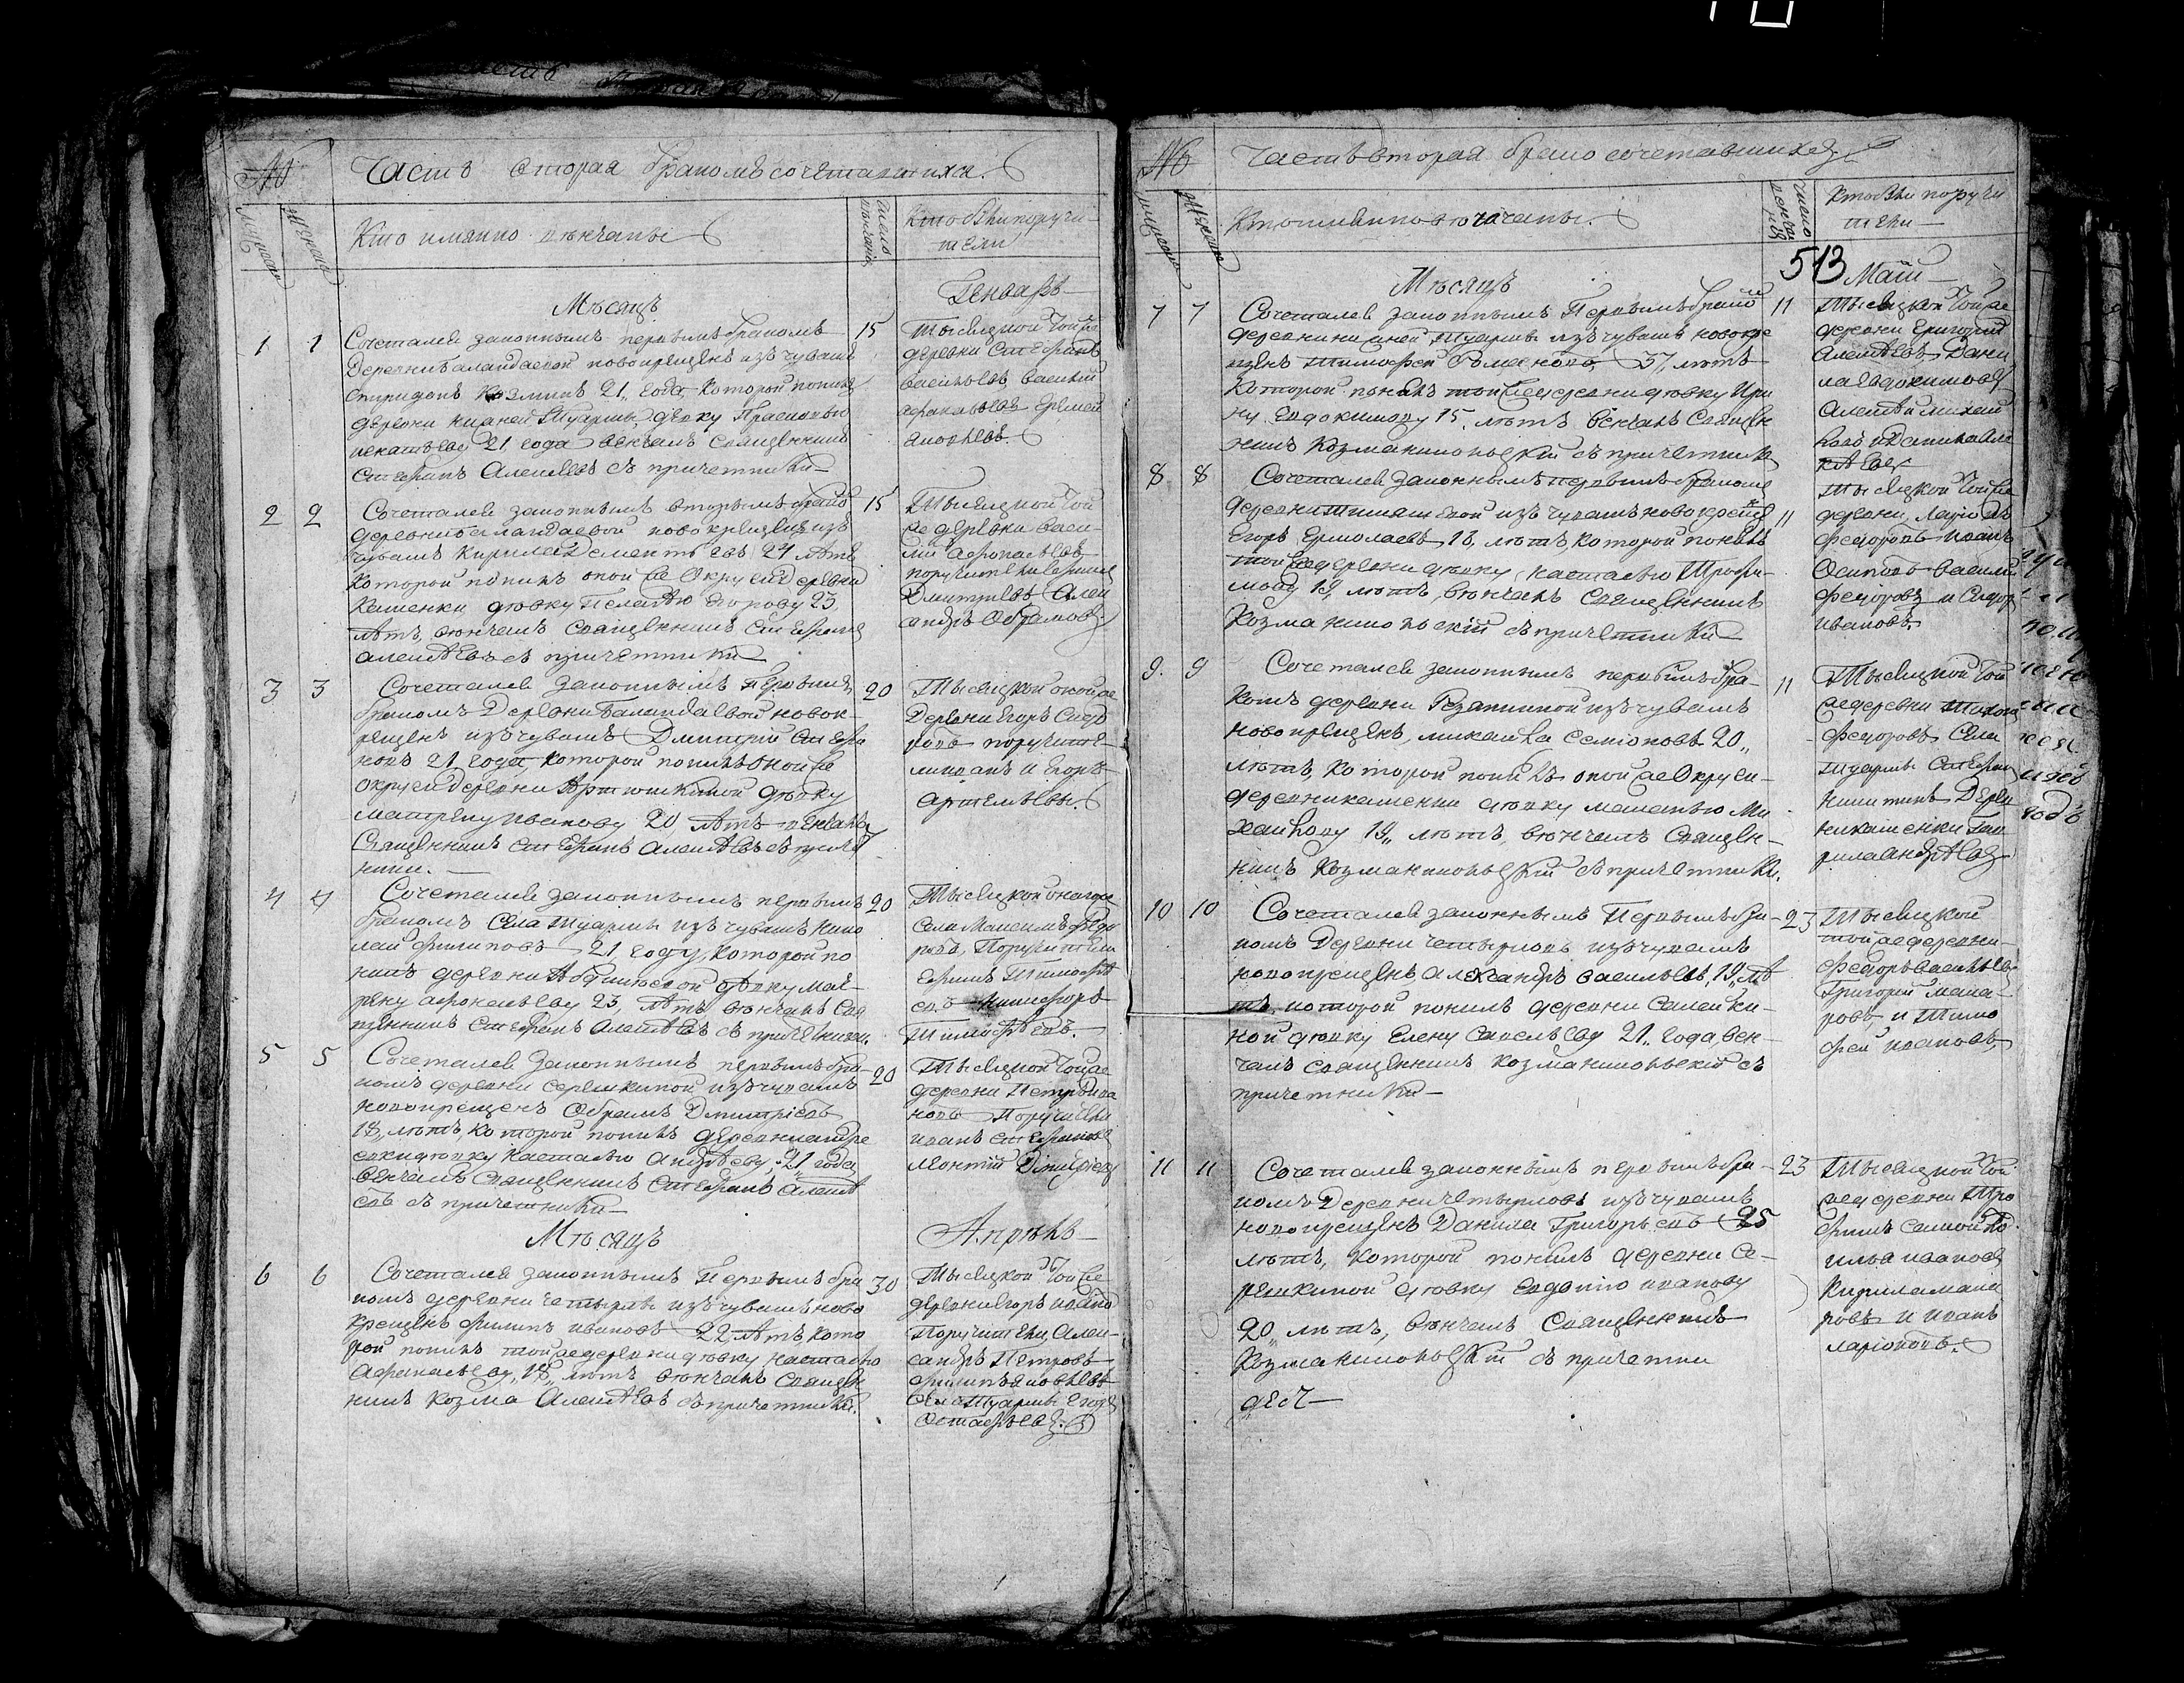 № Часть вторая бракомъ сочетавшихся.
Кто имянно венчаны
число венчанія
Кто были поручи-
тели
Мѣсяцъ Генварь
1 1 Сочетался законнымъ первымъ бракомъ 15
деревни Баландаевой новокрещенъ изъ чувашъ
Спиридонъ Козминъ 21, года, которой понялъ
деревни нижней Туармы, девку Прасковью
21, года венчалъ Священникъ
Стефанъ Алексѣевъ съ причетники
Тысяцкой той же
деревни Стефанъ
Васильевъ, Василий
Еремей
2 2 Сочетался законнымъ вторымъ брако 15
деревни Баландаевой новокрещенъ изъ
чувашъ Кирилла Дементьевъ 24 лѣтъ
которой понялъ оной же Округи деревни
Каменки девку Пелагѣю Егорову 23
лѣтъ, венчалъ Священникъ Стефанъ
Алексѣевъ съ причетники
Тысяцкой той
же деревни Васи-
лий Афонасьевъ
поручители
Дмитриевъ Алек
сандръ Обрамовъ.
3 3 Сочетался законнымъ первымъ 20
бракомъ деревни Баландаевой новок-
рещенъ изъ чувашъ Дмитрий Стефа
новъ 21 года, которой понялъ оной же
округи деревни Артюшкиной девку
Матрену Иванову 20 лѣтъ венчалъ
Священникъ Стефанъ Алексѣевъ съ причет
ники.
Тысяцкой оной же
деревни Егоръ Сидо
ровъ поручите-
ли Иванъ и Егоръ
Артемьевы.
4 4 Сочетался законнымъ первымъ 20
бракомъ села Туармы изъ чувашъ Нико
лай Филиповъ 21 году, которой по
нялъ деревни девку Мат-
рену Афонасьеву 23, лѣтъ венчалъ Свя
щенникъ Стефанъ Алексѣевъ съ причетники.
Тысяцкой оного же
села Максимъ Федо
ровъ, Поручители
Ефимъ Тимофѣе
въ Никифоръ
Тимофѣевъ.
5 5 Сочетался законнымъ первымъ бра- 20
комъ деревни Серешкиной изъ чувашъ
новокрещенъ Обрамъ Дмитріевъ
18, лѣтъ, которой понялъ деревни Андре
евки девку Настасью Андрѣеву, 21 года,
Венчалъ Священникъ Стефанъ Алексѣ
евъ съ причетники
Тысяцкой той же
деревни Петръ Ива
новъ Поручители
Иванъ Стефановъ
Леонтій Димитріевъ
Мѣсяцъ Апрѣль
6 6 Сочетался законнымъ Первымъ бра 30
комъ деревни Четырлы изъ чувашъ ново
крещенъ Филипъ Ивановъ 22 лѣтъ кото
рой понялъ той же деревни девку Настасью
Афанасьеву, 18, лѣтъ венчалъ Священ
никъ Козма Алексѣевъ съ причетники.
Тысяцкой той же
деревни Егоръ
Поручители, Алек-
сандръ Петровъ
Филипъ Яковлевъ
Села Туармы Егоръ
Остафьевъ.
№ Часть вторая брако сочетавшихся
Кто имянно венчаны.
Кто были поручи
тели
513
Мѣсяцъ Маій
7 7 Сочетался законнымъ Первымъ брако 11
деревни нижней Туармы изъ чувашъ новокре
щенъ Тимофей 37, лѣтъ
которой понялъ той же деревни девку Ири
ну Евдокимову 15, лѣтъ венчалъ Священ
никъ Козма съ причетники
Тысяцкой той же
деревни Григорий
Алексѣевъ Дани
ла Евдокимовъ
8 8 Сочетался законнымъ первымъ бракомъ
деревни изъ чувашъ новокреще 11
Егоръ Ермолаевъ 18, лѣтъ, которой понялъ
той же деревни девку, Настасью Трофи-
мову 19, лѣтъ, венчалъ Священникъ
Козма съ причетники
Тысяцкой той же
деревни Ларіонъ
Федоровъ Иванъ
Осиповъ Василий
Федоровъ и Сидоръ
Ивановъ.
9. 9 Сочетался законнымъ первымъ бра-
комъ деревни Резяпкиной изъ чувашъ 11
новокрещенъ, Михайла Семіоновъ 20,,
лѣтъ, которой понялъ оной же Округи-
деревни Каменки девку Меланью Ми
хайлову 19,, лѣтъ, венчалъ Священ-
никъ Козма съ причетники.
Тысяцкой той
же деревни
Федоровъ, Села
Туармы Стефанъ
Никитинъ Дерев
ни Каменки Гав
рила Андрѣевъ
10 10 Сочетался законнымъ Первымъ бра- 23
комъ деревни Четырловъ изъ чувашъ
новокрещенъ Александръ Васильевъ, 19, лѣ
тъ, которой понялъ деревни Семейки-
ной девку Елену Савельеву 21,, года, вен-
чалъ Священникъ Козма съ
причетники
Тысяцкой
той же деревни-
Федоръ Васильевъ
Григорий Мака-
ровъ, и Тимо
фей Ивановъ,
11 11 Сочетался законнымъ первымъ бра- 23
комъ деревни Четырловъ изъ чувашъ
новокрещенъ Данила Григорьевъ 25
лѣтъ, которой понялъ деревни Се-
решкиной девку Евдокію Иванову
20,, лѣтъ, венчалъ Священникъ
Козма съ причетни
Тысяцкой той
же деревни Тро
фимъ
Илья Ивановъ
Кирилла Мака
ровъ и Иванъ
Ларіоновъ.